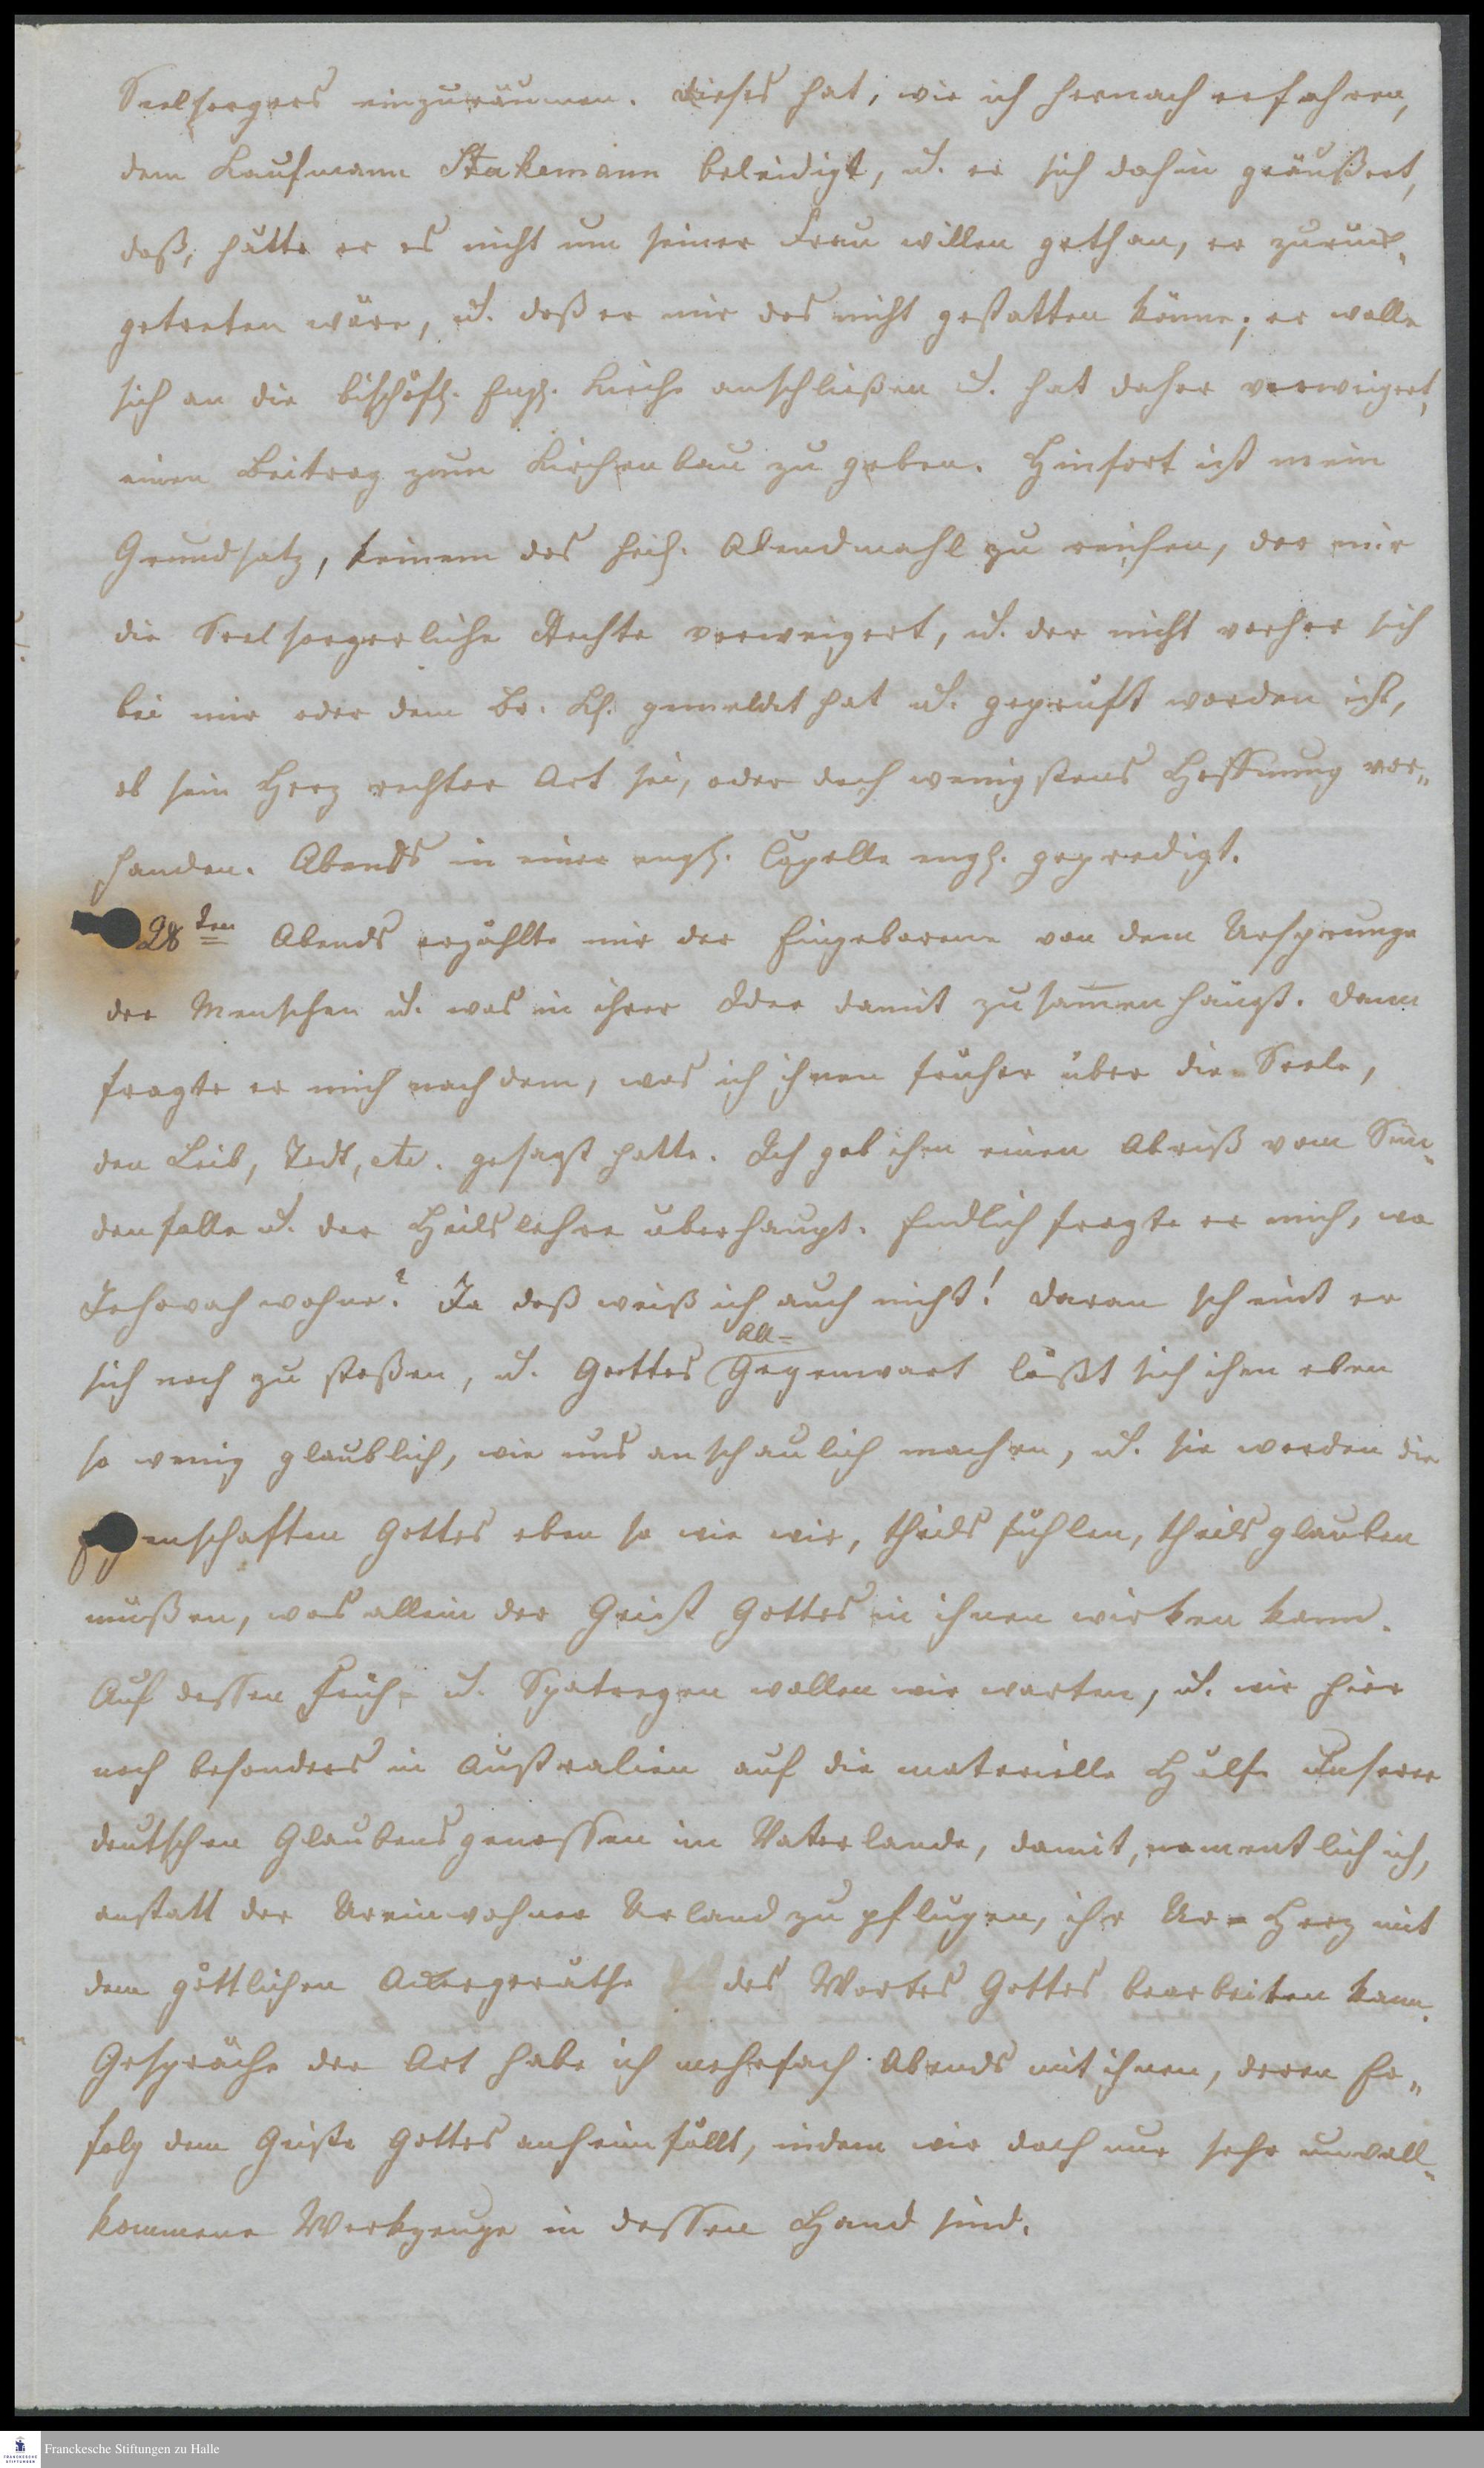 Seelsorgers einzuräumen. Dieses hat, wie ich hernach erfahren,
dem Kaufmann Stakemann beleidigt, u. er sich dahin geäußert,
daß, hätte er es nicht um seiner Frau willen gethan, er zurück-
getreten wäre, u. daß er mir das nicht gestatten könne; er wolle
sich an die bischöfl. Engl. Kirche anschließen u. hat daher verweigert,
einen Beitrag zum Kirchenbau zu geben. Hinfort ist mein
Grundsatz, keinem das heil. Abendmahl zu reichen, der mir
die Seelsorgerliche Rechte verweigert, u. der nicht vorher sich
bei mir oder dem Br. Kl. gemeldet hat u. geprüft worden ist,
ob sein Herz rechter Art sei, oder doch wenigstens Hoffnung vor-
handen. Abends in einer engl. Capelle engl. gepredigt.
28ten Abends erzählte mir der Eingeborene von dem Ursprunge
der Menschen u. was in ihrer Idee damit zusamenhängt. Dann
fragte er mich nach dem, was ich ihnen früher über die Seele,
den Leib, Todt, etc. gesagt hatte. Ich gab ihm einen Abriß vom Sün-
denfalle u. der Heilslehre überhaupt. Endlich fragte er mich, wo
Jehovah wohne? Ja daß weiß ich auch nicht! Daran scheint er
sich noch zu stoßen, u. Gottes All-Gegenwart läßt sich ihm eben
so wenig glaublich, wie uns anschaulich machen, u. sie werden die
enschaften Gottes eben so wie wir, theils fühlen, theils glauben
müßen, was allein der Geist Gottes in ihnen wirken kann.
Auf dessen Früh- u. Spatregen wollen wir warten, u. wir hier
noch besonders in Australien auf die materielle Hülfe unserer
deutschen Glaubensgenossen im Vaterlande, damit, namentlich ich,
anstatt der Ureinwohner Urland zu pflügen, ihr Ur-Herz mit
dem göttlichen Ackergeräthe des Wortes Gottes bearbeiten kann.
Gespräche der Art habe ich mehrfach Abends mit ihnen, deren Er-
folg dem Geiste Gottes anheimfällt, indem wir doch nur sehr unvoll-
kommene Werkzeuge in dessen Hand sind.
Franckesche Stiftungen zu Halle